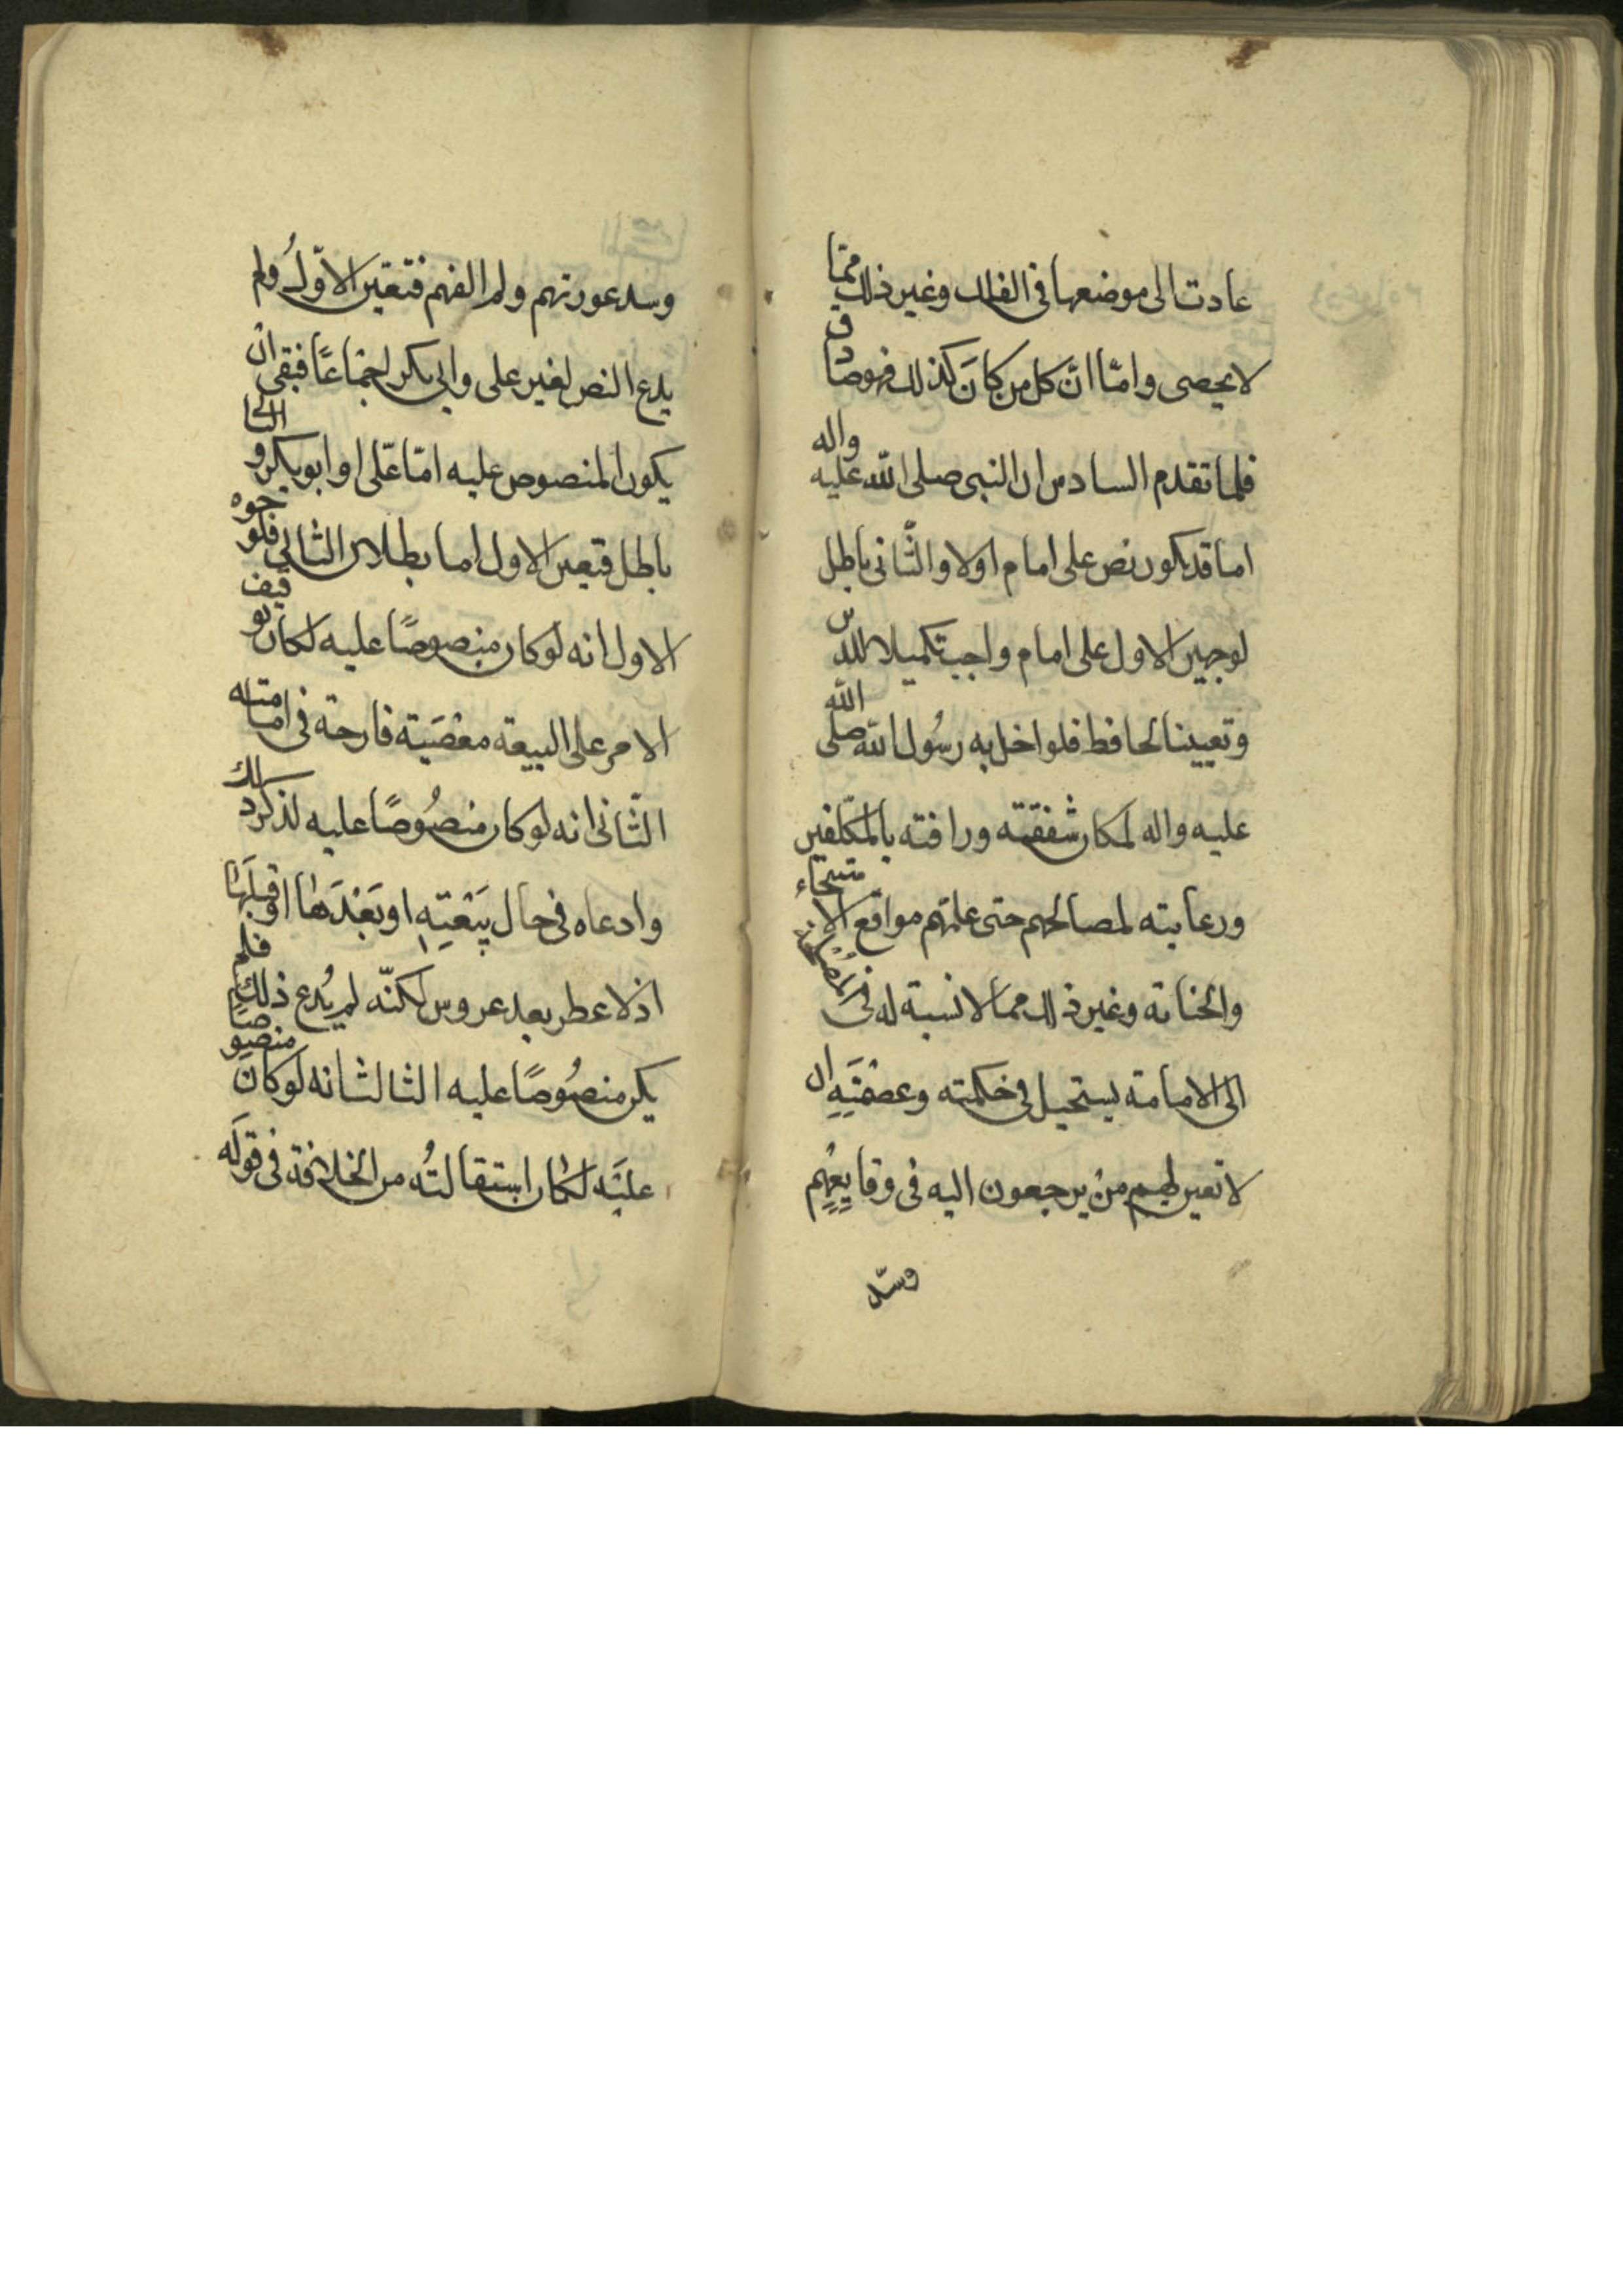 عادت الى موضعها فى الفلك وغير ذلك ممّا
لا يحصى وامّا انّ كل من كانَ كذلك فهو صادق
فلما تقدم السادس ان النبى صلى الله عليه واله
اما قد يكون نص على امام اولا والثّانى باطل
لوجهين الاول على امام واجب تكميلا للدين
وتعيينا لحافظ فلو اخل به رسُول الله صلى الله
عليه واله لمكان شفقته ورافته بالمكلّفين
ورعايته لمصالحهم حتى علمهم مواقع الاستنجاء
والجنابة وغير ذلك مما لا نسبة له فى
الى الامامة يستحيل فى حكمته وعصمَتِهِ ان
لا تعين لهم منْ يرجعون اليه فى وقايعِهِم
وسدّ
وسد عورتهم ولم الفهم فتعيّن الاوّلُ ولم
يدع النص لغير على وابى بكر اجماعًا فبقى ان
يكون المنصوص عليه امّا علّى او ابو بكر والثا
باطل فتعين الاول اما بطلان الثانى فلوجوه
الاول انه لو كان منصوصًا عليه لكان توقيف
الامر على البيعة معْصَيَة قادحة فى امامته
الثّانى انه لو كان منصُوصًا عليه لذكر ذلك
وادعاه فى حال بَيْعَتِهِ او بَعْدَهٰا او قبلَهٰا
اذ لا عطر بعد عروس لكنّه لم يُدع ذلك فلم
يكن منصُوصًا عليه الثالث انه لو كانَ منصوصًا
عليْه لكان استقالتُه من الخلافة فى قوله